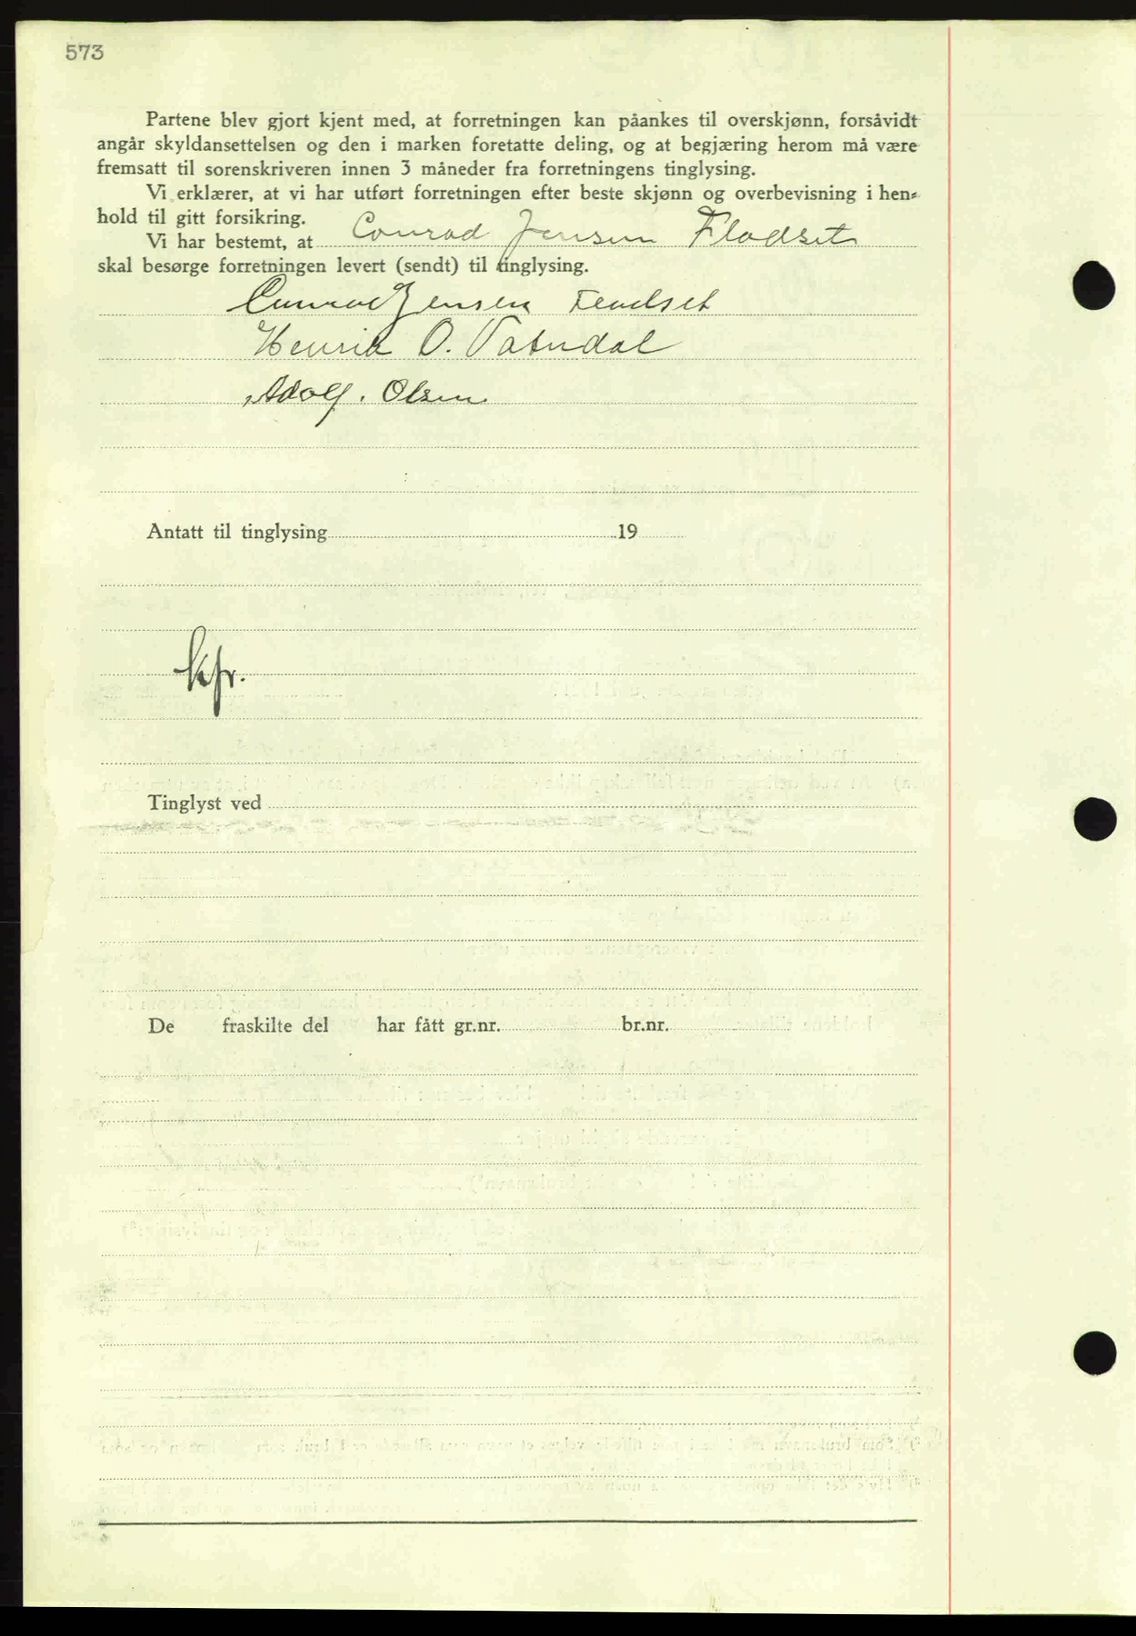 573
Partene blev gjort kjent med, at forretningen kan påankes til overskjønn, forsåvidt
angår skyldansettelsen og den i marken foretatte deling, og at begjæring herom må være
fremsatt til sorenskriveren innen 3 måneder fra forretningens tinglysing.
Vi erklærer, at vi har utført forretningen efter beste skjønn og overbevisning i hen-
hold til gitt forsikring.
Vi har bestemt, at Conrad Jensen Flodset
skal besørge forretningen levert (sendt) til tinglysing.
Conrad Jensen
Henrik O. Vatndal
Adolf. Olsen
Antatt til tinglysing 19
kfr.
Tinglyst ved
De fraskilte del har fått gr.nr. br.nr.